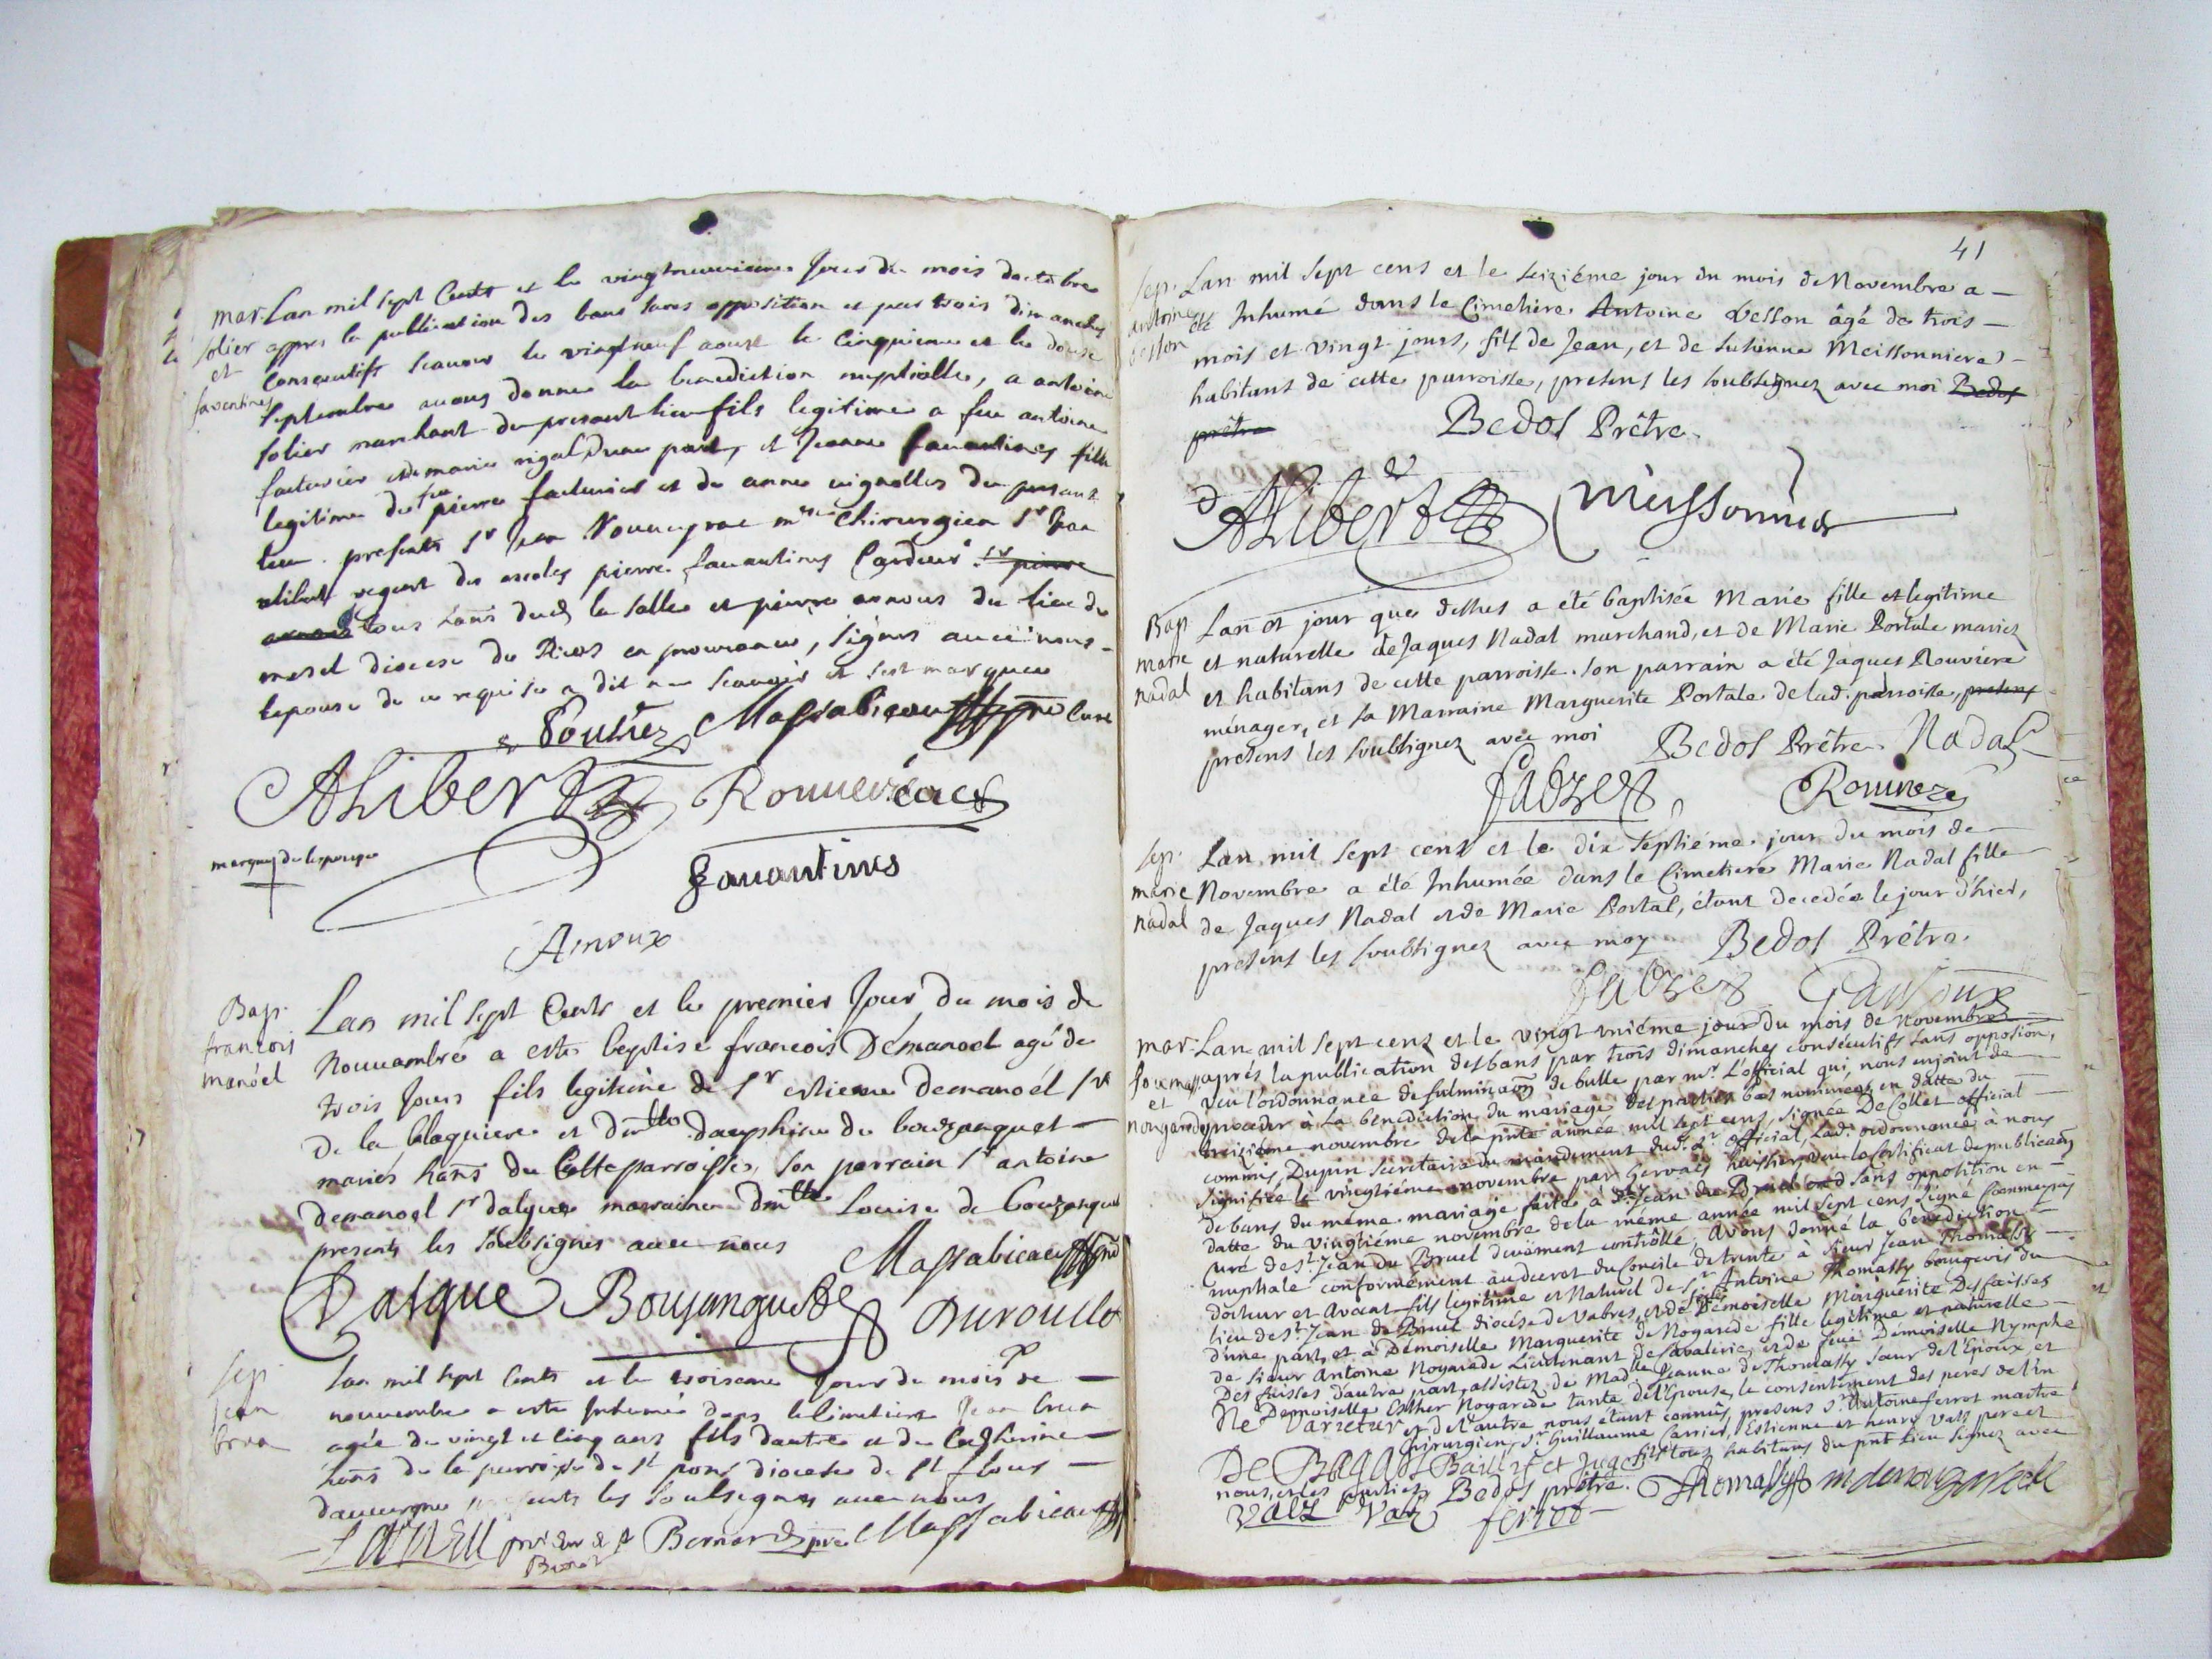 mar.
solier
et
faventines
Lan mil sept Cents et le vingtneuvieme Jour du mois doctobre
appres la publication des bans sans opposition et par trois dimanches
Consecutifs scavoir le vingtneuf aoust le Cinquieme et le douse
septembre avons donne la benediction nuptialle, a antoine
solier marchant du presant lieu fils legitime a feu antoine
facturier et de marie rigal d'une part, et Jeanne favantines fille
legitime de feu pierre facturier et de anne vignolles du presant
lieu. presents Sr Jean Rouveyrac mre Chirurgien Sr Jean
alibert regent des escoles pierre favantines Cardeur Sr pierre
arnoux tous hans dud la salle et pierre arnoux du lieu de
mesel diocese de Riez en provence, signes avec nous
lepouse de ce requise a dit ne scavoir et sest marquee
Soulier Massabieau pre Cure
Alibert Rouveirac
marque de lespouse
favantines
Arnoux
Bap.
francois
manoel
Lan mil sept Cents et le premier Jour du mois de
Nouvambre a este baptise francois Demanoel agé de
trois Jours fils legitime de Sr estienne demanoél Sr
De la blaquiere et dmlle dauphine de bouzanquet
mariés hans de Cette parroisse, son parrain Sr antoine
demanoel Sr dalgue marraine dmlle Louise de bouzanquet
presents les soubsignes avec nous Massabieau pre
Dalgue Bouzanquet Duroullo
sep
Jean
brun
Lan mil sept Cents et le troiseme Jour du mois de
nouvembre a este Inhumé dans le Cimetiere Jean brun
agée de vingt et Cinq ans fils dautre et de Catherine
hans de la parroisse de St pons diocese de St flour
dauvergne presents les soubsignes avec nous
Bernard pre Massabieau
41
sep.
antoine
Lan mil sept cens et le seizième jour du mois de Novembre a
été Inhumé dans le Cimetiere Antoine Vesson âgé de trois
mois et vingt jours, fils de Jean, et de Suzanne Meissonniere
habitans de cette parroisse, presens les soubsignez avec moi Bedos
prêtre Bedos Prêtre.
Alibert meyssonnier
Bap
marie
nadal
Lan et jour que dessus a été baptisée Marie fille et legitime
et naturelle de Jaques Nadal marchand, et de Marie Portale mariez
et habitans de cette parroisse. son parrain a été Jaques Rouviere
ménager, et sa Marraine Marguerite Portale de lad. parroisse, presens
presens les soubsignez avec moi Bedos Prêtre. Nadal
fabre Rouviere
sep.
marie
nadal
Lan mil sept cens et le dix septiéme jour du mois de
Novembre a été Inhumée dans le Cimetiere Marie Nadal fille
de Jaques Nadal et de Marie Portal, étant decedée le jour d'hier,
presens les soubsignez avec moy Bedos Prêtre.
fabre
mar.
et
Lan mil sept cens et le vingt uniéme jour du mois de novembre
aprés la publication des bans par trois dimanches consecutifs sans opposion,
veu l'ordonnance de fulminaon de bulle par mr. L'official qui nous enjoint de
proceder à la benediction du mariage des parties bas nommées en datte du
treizieme novembre de la pnte année mil sept cens, signée De Collet official
commis, Dupin secretaire du mandement dud. Sr. official, lad. ordonnance à nous
signifiée le vingtiéme novembre par Gervais huissier, veu le Certificat de publicaon
de bans du même mariage faite à St Jean du Bruel sans opposition en
datte du vingtiéme novembre de la même année mil sept cens signé
curé de St. Jean du Bruel duëment contrôllé, Avons donné la benediction
nuptiale conformement au decret du Concile de trente à Sieur Jean Thomassy
docteur et avocat fils legitime et Naturel de Sr. Antoine Thomassy bourgeois du
lieu de St. Jean du Bruel diocése de Vabres, et de Demoiselle Marguerite Desfaisses
d'une part, et à Demoiselle Marguerite de Nogarede fille legitime et naturelle
de Sieur Antoine Nogarede Lieutenant de Cavalerie, et de feue Demoiselle Nymphe
Des faisses d'autre part, assistez de Madlle Jeanne de Thomassy sœur de l'Epoux, et
Demoiselle Esther Nogarede tante de l'Epouse, le consentement des peres de l'un
et de l'autre nous étant connus, presens Sr. Antoine ferrot maitre
chirurgien, Sr. Guillaume Carrier, Estienne et henry Valz pere et
fils tous habitans du pnt lieu signez avec
nous, et les parties Bedos prêtre. Thomassy m denougarede
Ne Varietur
De Bagars Bailif et Juge
Valz Valz ferrot